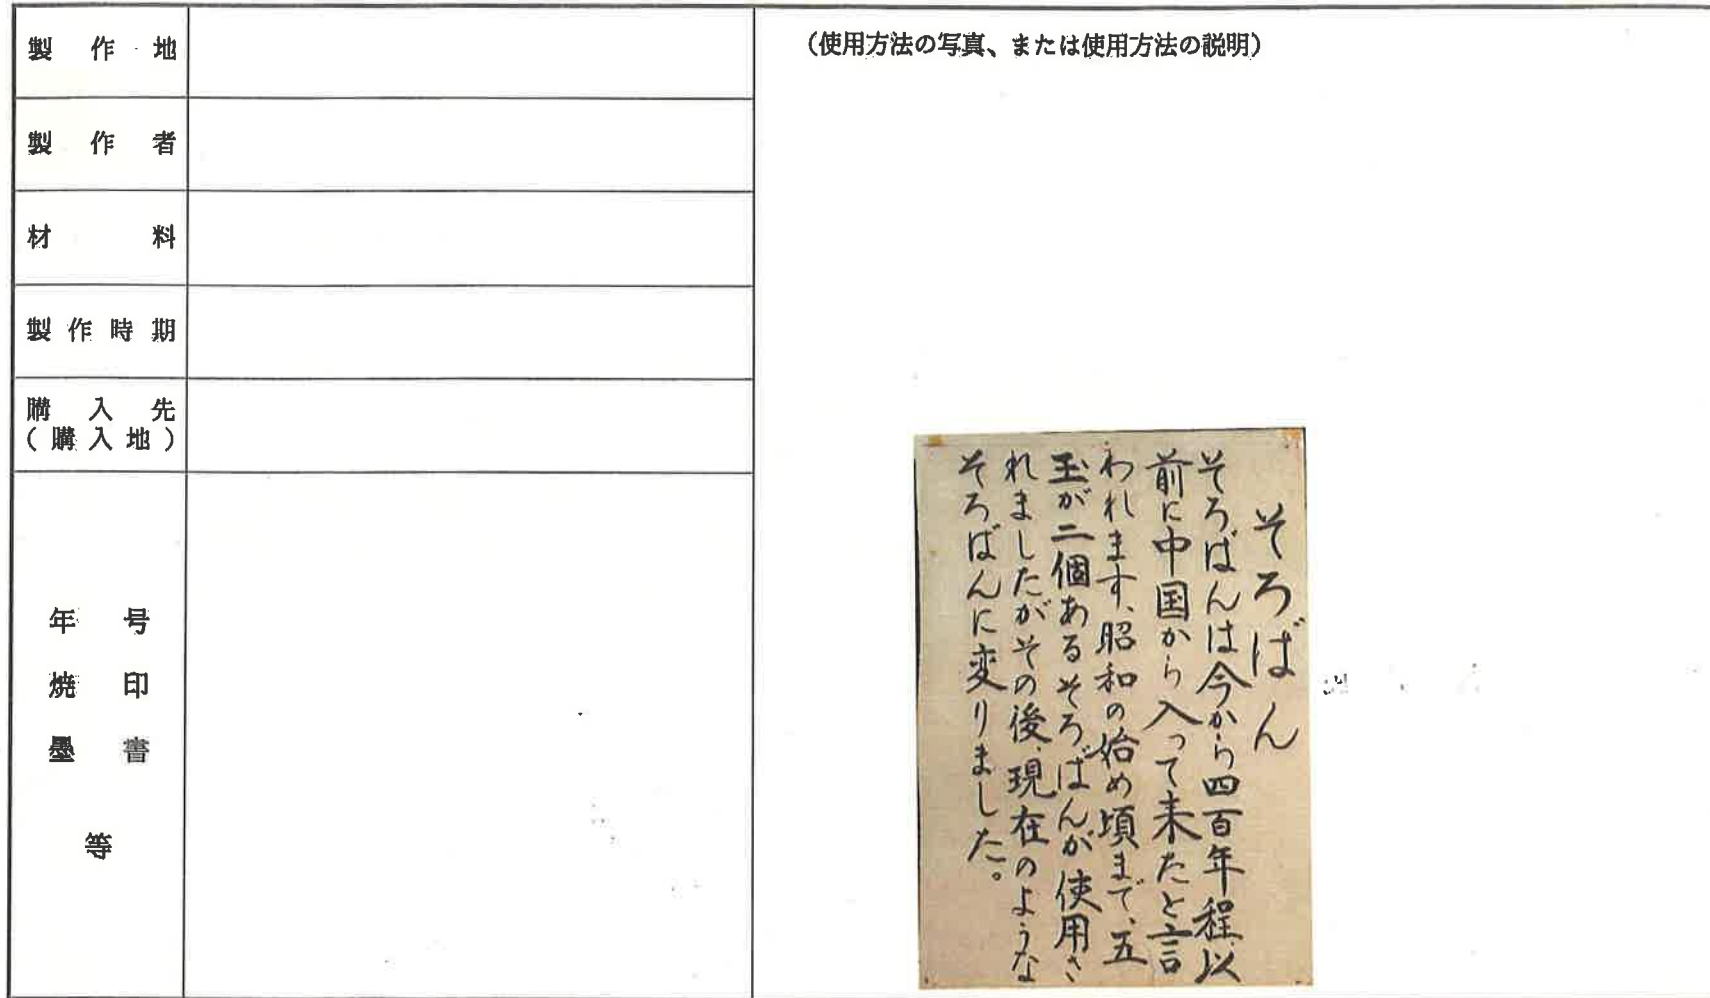 製作地
製作者
材料
製作時期
購入先
(購入地)
年号
焼印
墨書
等
(使用方法の写真、または使用方法の説明)
そろばん
そろばんは今から四百年程以
前に中国から入って来たと言
われます、昭和の始め頃まで、五
玉が二個あるそろばんが使用さ
れましたがその後、現在のような
そろばんに変りました。